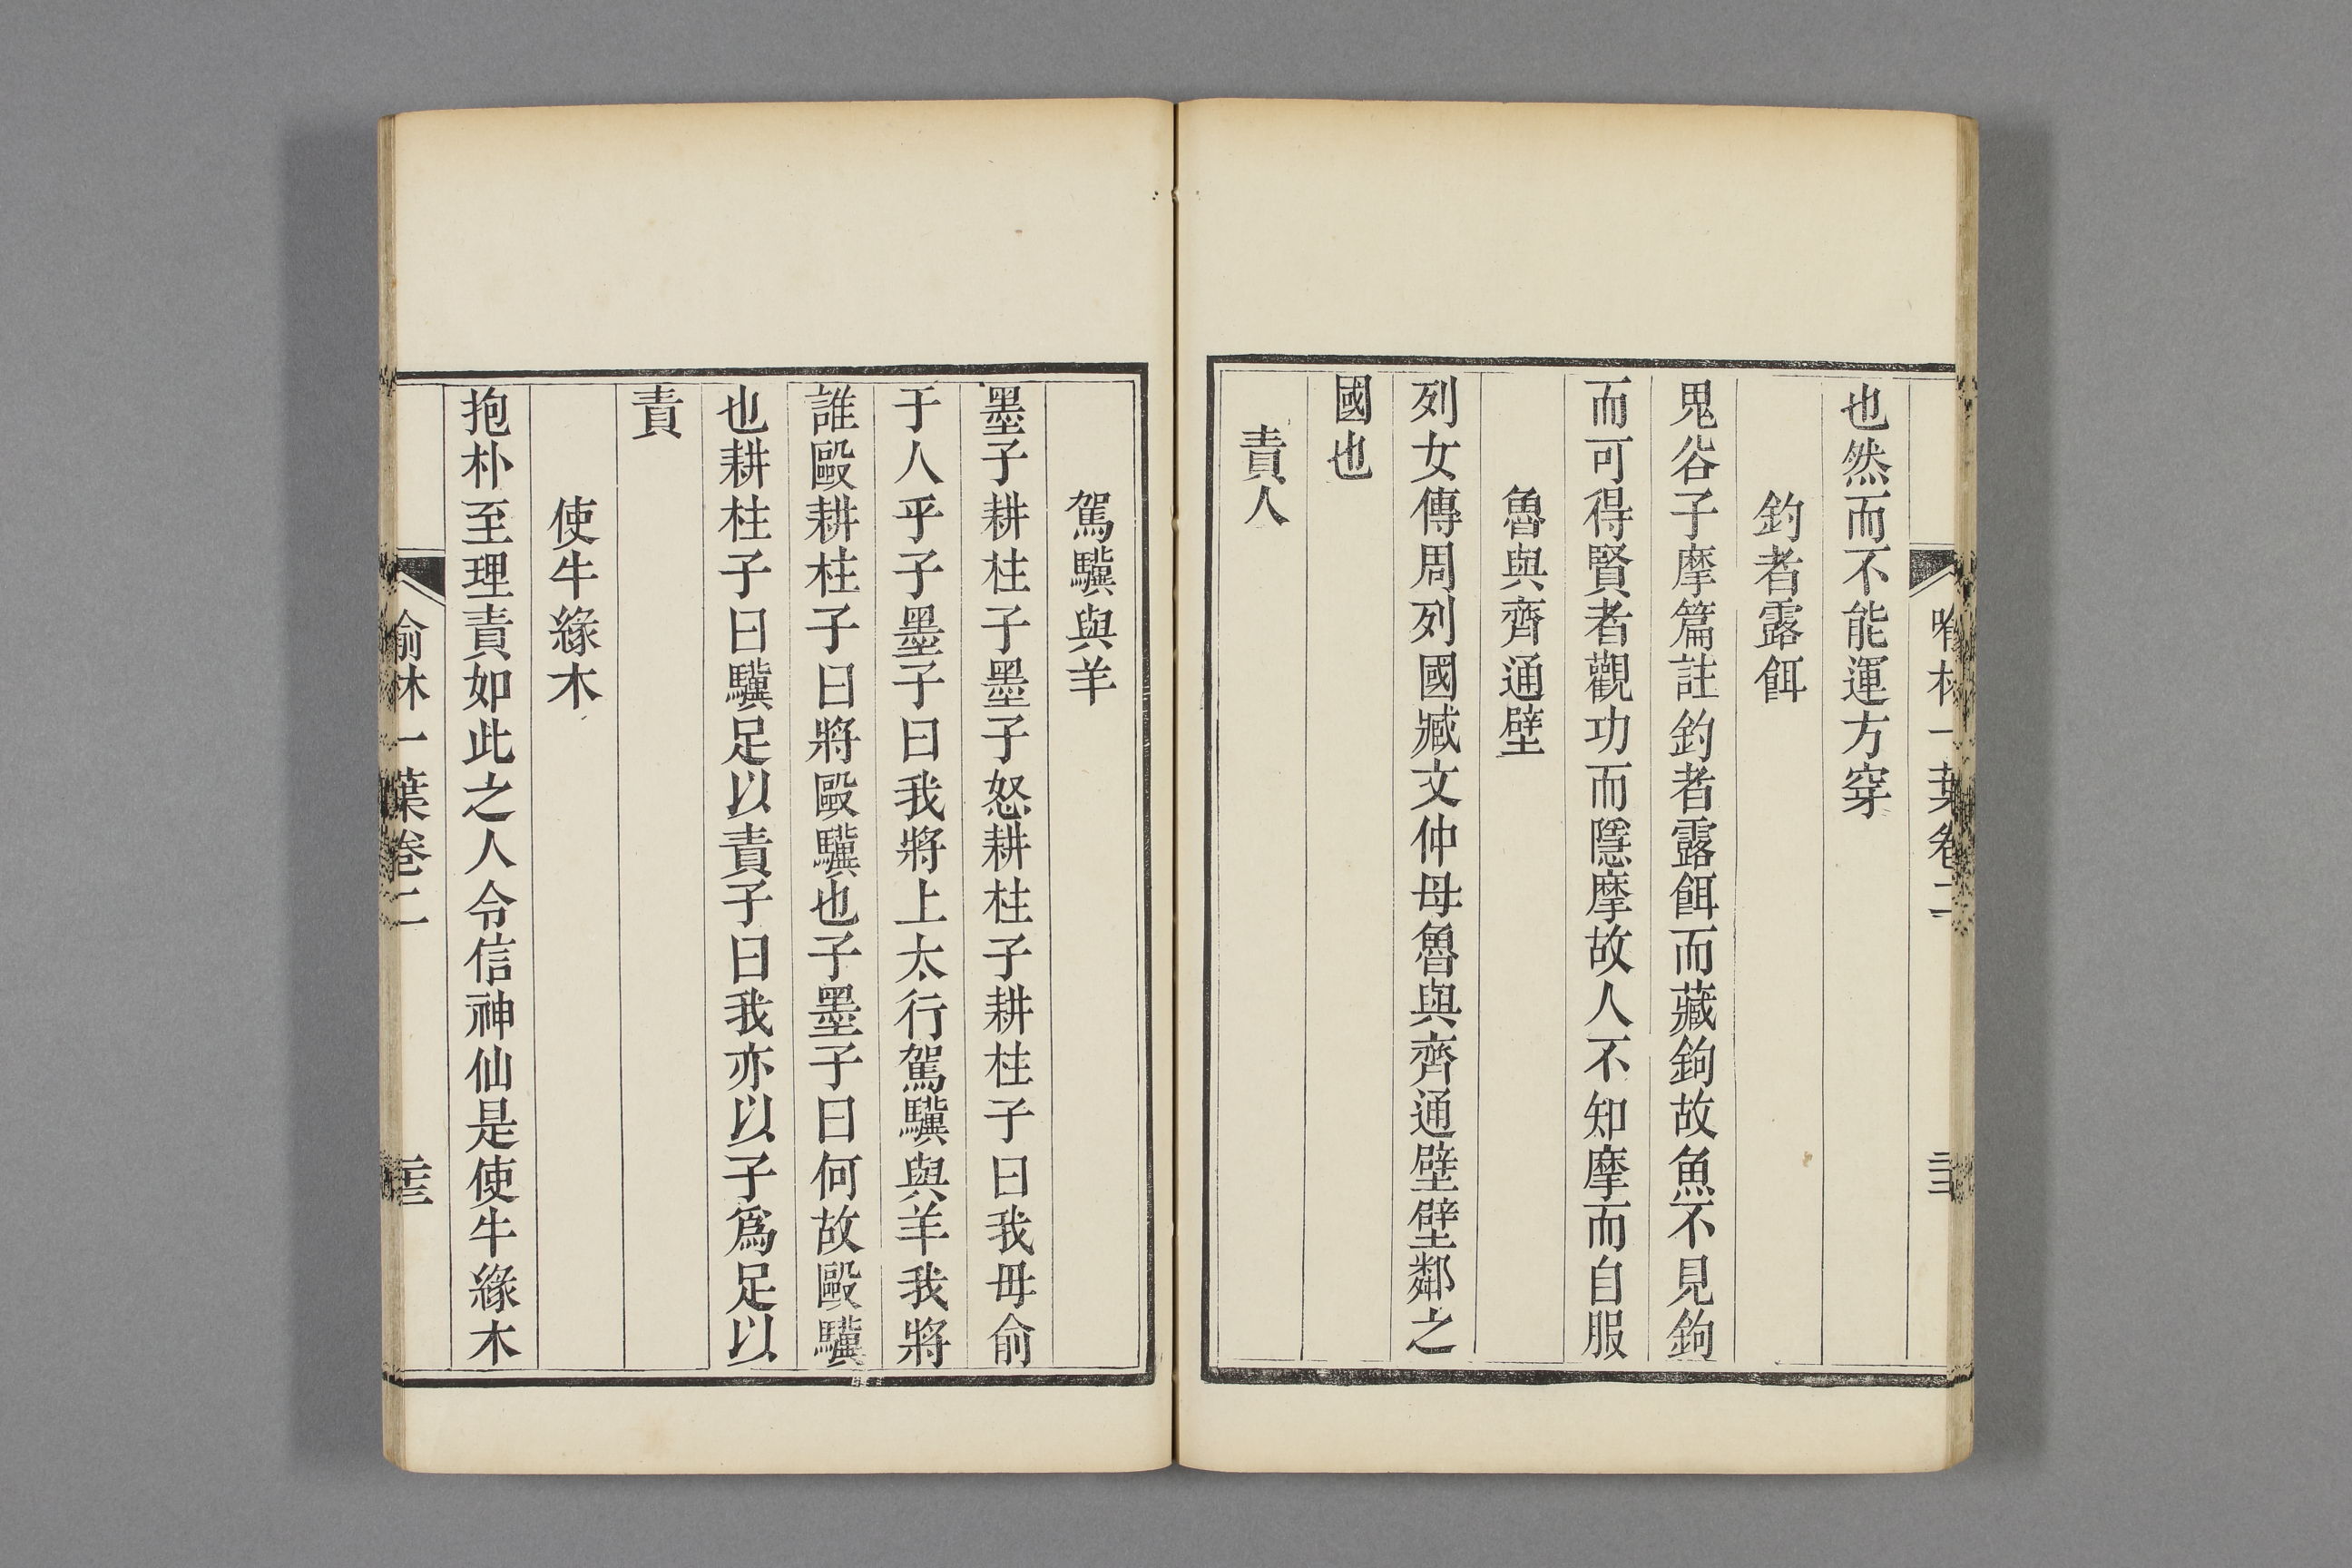 也然而不能運方穿
釣者露餌
鬼谷子摩篇註釣者露餌而藏鉤故魚不見鉤
而可得賢者觀功而隱摩故人不知摩而自服
魯與齊通壁
列女傳周列國臧文仲母魯與齊通壁壁鄰之
國也
責人
駕驥與羊
墨子耕柱子墨子怒耕柱子耕柱子曰我毋俞
于人乎子墨子曰我將上太行駕驥與羊我將
誰毆耕柱子曰將毆驥也子墨子曰何故毆驥
也耕柱子曰驥足以責子曰我亦以子爲足以
責
使牛緣木
抱朴至理責如此之人令信神仙是使牛緣木
喻林一葉卷二